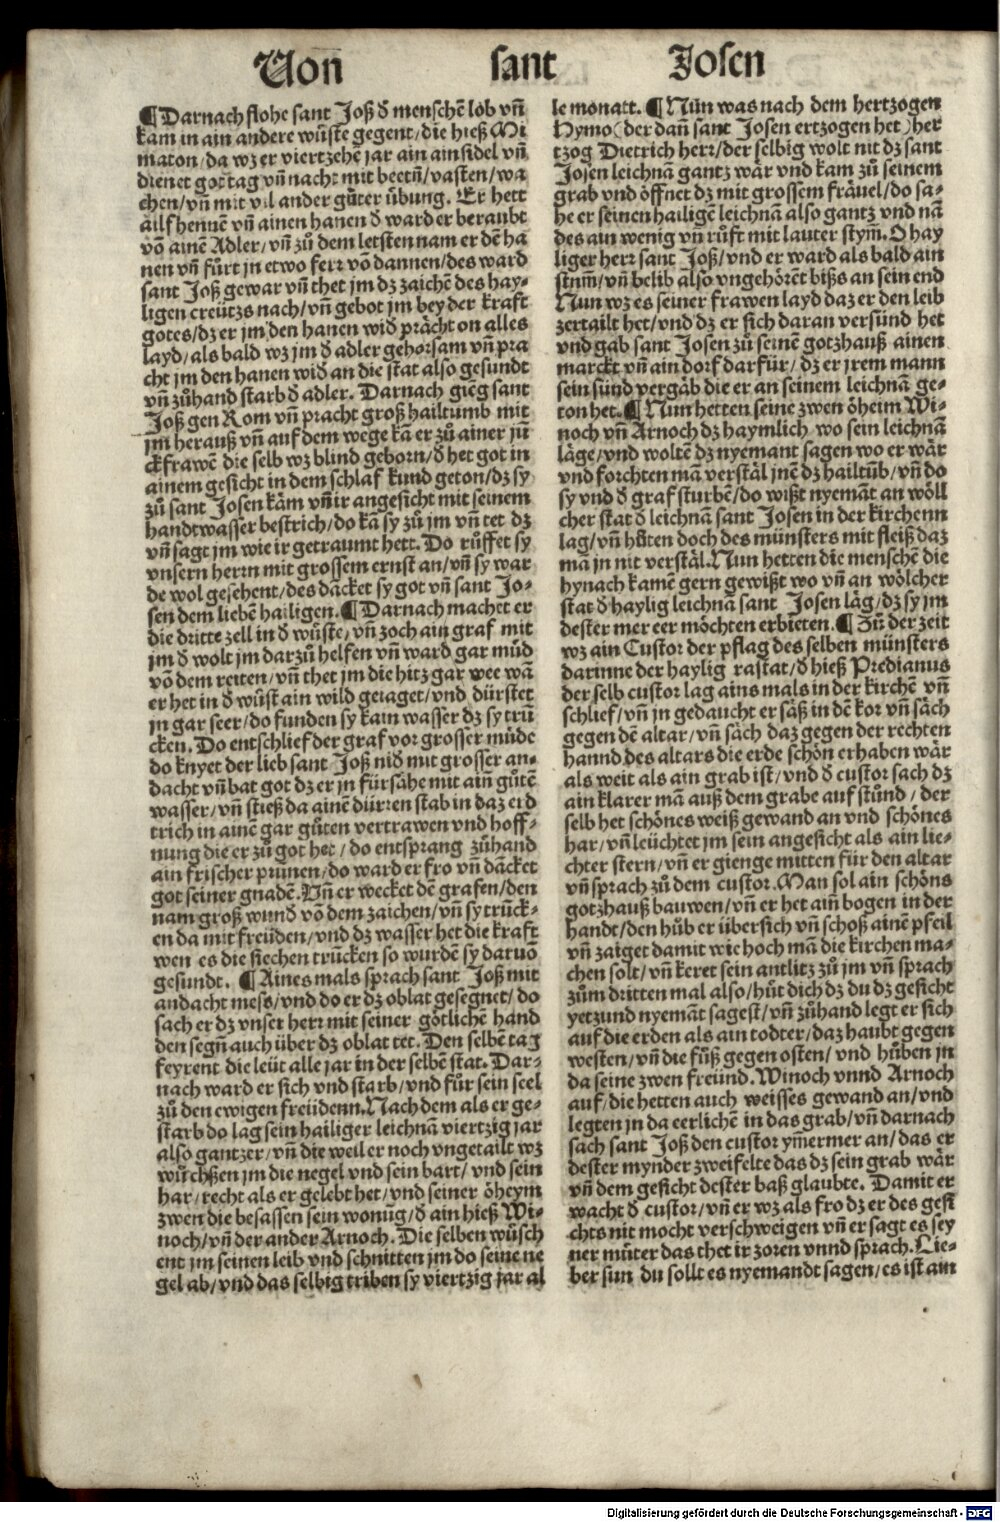 Von sant Josen
¶Darnach flohe sant Joß d̕ menschē lob vn̄
kam in ain andere wu̎ste gegent/die hieß Mi
maton/da wz er viertzehē jar ain ainsidel vn̄
dienet got tag vn̄ nacht mit beetn̄/vasten/wa
chen/vn̄ mit vil ander gůter u̎bung. Er hett
ailf hennē vn̄ ainen hanen d̕ ward er beraubt
vō ainē Adler/vn̄ zů dem letsten nam er dē ha
nen vn̄ fůrt jn etwo ferr vō dannen/des ward
sant Joß gewar vn̄ thet jm dz zaichē des hay-
ligen creu̎tzs nach/vn̄ gebot jm bey der kraft
gotes/dz er jm den hanen wid̕ pra̎cht on alles
layd/als bald wz jm d̕ adler gehorsam vn̄ pra
cht jm den hanen wid̕ an die stat also gesundt
vn̄ zůhand starb d̕ adler. Darnach gieng sant
Joß gen Rom vn̄ pracht groß hailtumb mit
jm herauß vn̄ auf dem wege kā er zů ainer ju̎
ckfrawē die selb wz blind geborn/d̕ het got in
ainem gesicht in dem schlaf kund geton/dz sy
zů sant Josen ka̎m vn̄ ir angesicht mit seinem
handtwasser bestrich/do kā sy zů jm vn̄ tet dz
vn̄ sagt jm wie ir getraumt hett. Do růffet sy
vnsern herrn mit grossem ernst an/vn̄ sy war
de wol gesehent/des da̎cket sy got vn̄ sant Jo-
sen dem liebē hailigen. ¶Darnach machet er
die dritte zell in d̕ wu̎ste/vn̄ zoch ain graf mit
jm d̕ wolt jm darzů helfen vn̄ ward gar mu̎d
vō dem reiten/vn̄ thet jm die hitz gar wee wā
er het in d̕ wu̎st ain wild geiaget/vnd du̎rstet
jn gar seer/do funden sy kain wasser dz sy tru̎
cken. Do entschlief der graf vor grosser mu̎de
do knyet der lieb sant Joß nid̕ mit grosser an-
dacht vn̄ bat got dz er jn fu̎rsa̎he mit aim̄ gůtē
wasser/vn̄ stieß da ainē du̎rren stab in daz erd
trich in ainē gar gůten vertrawen vnd hoff-
nung die er zů got het/do entsprang zůhand
ain frischer prunen/do ward er fro vn̄ da̎cket
got seiner gnadē. Vn̄ er wecket dē grafen/den
nam groß wund̕ vō dem zaichen/vn̄ sy tru̎ck-
en da mit freu̎den/vnd dz wasser het die kraft
wen es die siechen tru̎cken so wurdē sy daruō
gesundt. ¶Aines mals sprach sant Joß mit
andacht mess/vnd do er dz oblat gesegnet/do
sach er dz vnser herr mit seiner go̎tlichē hand
den segn̄ auch u̎ber dz oblat tet. Den selbē tag
feyrent die leu̎t alle jar in der selbē stat. Dar-
nach ward er sich vnd starb/vnd fůr sein seel
zů den ewigen freu̎denn. Nach dem als er ge-
starb do lag sein hailiger leichnā viertzig jar
also gantzer/vn̄ die weil er noch vngetailt wz
wůchßen jm die negel vnd sein bart/vnd sein
har/recht als er gelebt het/vnd seiner o̎heym
zwen die besassen sein wonūg/d̕ ain hieß Wi-
noch/vn̄ der ander Arnoch. Die selben wu̎sch
ent jm seinen leib vnd schnitten jm do seine ne
gel ab/vnd das selbig triben sy viertzig jar al
le monatt. ¶Nun was nach dem hertzogen
Hymo(der dan̄ sant Josen ertzogen het)her
tzog Dietrich herr/der selbig wolt nit dz sant
Josen leichnā gantz wa̎r vnd kam zů seinem
grab vnd o̎ffnet dz mit grossem fra̎uel/do sa-
he er seinen hailigē leichnā also gantz vnd nā
des ain wenig vn̄ růft mit lauter stym̄. O hay
liger herr sant Joß/vnd er ward als bald ain
stum̄/vn̄ belib also vngeho̎rēt bißs an sein end
Nun wz es seiner frawen layd daz er den leib
zertailt het/vnd dz er sich daran versu̎nd het
vnd gab sant Josen zů seinē gotzhauß ainen
marckt vn̄ ain dorf darfu̎r/dz er jrem mann
sein su̎nd verga̎b die er an seinem leichnā ge-
ton het. ¶Nun hetten seine zwen o̎heim Wi-
noch vn̄ Arnoch dz haymlich wo sein leichnā
la̎ge/vnd woltē dz nyemant sagen wo er wa̎r
vnd forchten mā versta̎l jnē dz hailtūb/vn̄ do
sy vnd d̕ graf sturbē/do wißt nyemāt an wo̎ll
cher stat d̕ leichnā sant Josen in der kirchenn
lag/vn̄ hu̎ten doch des mu̎nsters mit fleiß daz
mā jn nit versta̎l. Nun hetten die menschē die
hynach kamē gern gewißt wo vn̄ an wo̎lcher
stat d̕ haylig leichnā sant Josen la̎g/dz sy jm
dester mer eer mo̎chten erbieten. ¶Zů der zeit
wz ain Custor der pflag des selben mu̎nsters
darinne der haylig rastat/d̕ hieß Predianus
der selb custor lag ains mals in der kirchē vn̄
schlief/vn̄ jn gedaucht er sa̎ß in dē kor vn̄ sa̎ch
gegen dē altar/vn̄ sa̎ch daz gegen der rechten
hannd des altars die erde scho̎n erhaben wa̎r
als weit als ain grab ist/vnd d̕ custor sach dz
ain klarer mā auß dem grabe auf stůnd/der
selb het scho̎nes weiß gewand an vnd scho̎nes
har/vn̄ leu̎chtet jm sein angesicht als ain lie-
chter stern/vn̄ er gienge mitten fu̎r den altar
vn̄ sprach zů dem custor. Man sol ain scho̎ns
gotzhauß bauwen/vn̄ er het aim̄ bogen in der
handt/den hůb er u̎bersich vn̄ schoß ainē pfeil
vn̄ zaiget damit wie hoch mā die kirchen ma-
chen solt/vn̄ keret sein antlitz zů jm vn̄ sprach
zům dritten mal also/hu̎t dich dz du dz gesicht
yetzund nyemāt sagest/vn̄ zůhand legt er sich
auf die erden als ain todter/daz haubt gegen
westen/vn̄ die fu̎ß gegen osten/vnd hůben jn
da seine zwen freu̎nd. Winoch vnnd Arnoch
auf/die hetten auch weisses gewand an/vnd
legten jn da eerlichē in das grab/vn̄ darnach
sach sant Joß den custor ym̄ermer an/das er
dester mynder zweifelte das dz sein grab wa̎r
vn̄ dem gesicht dester baß glaubte. Damit er
wacht d̕ custor/vn̄ er wz als fro dz er des gesi
chts nit mocht verschweigen vn̄ er sagt es sey
ner můter das thet ir zoren vnnd sprach. Lie-
ber sun du sollt es nyemandt sagen/es ist ain
Digitalisierung gefördert durch die Deutsche Forschungsgemeinschaft - DFG